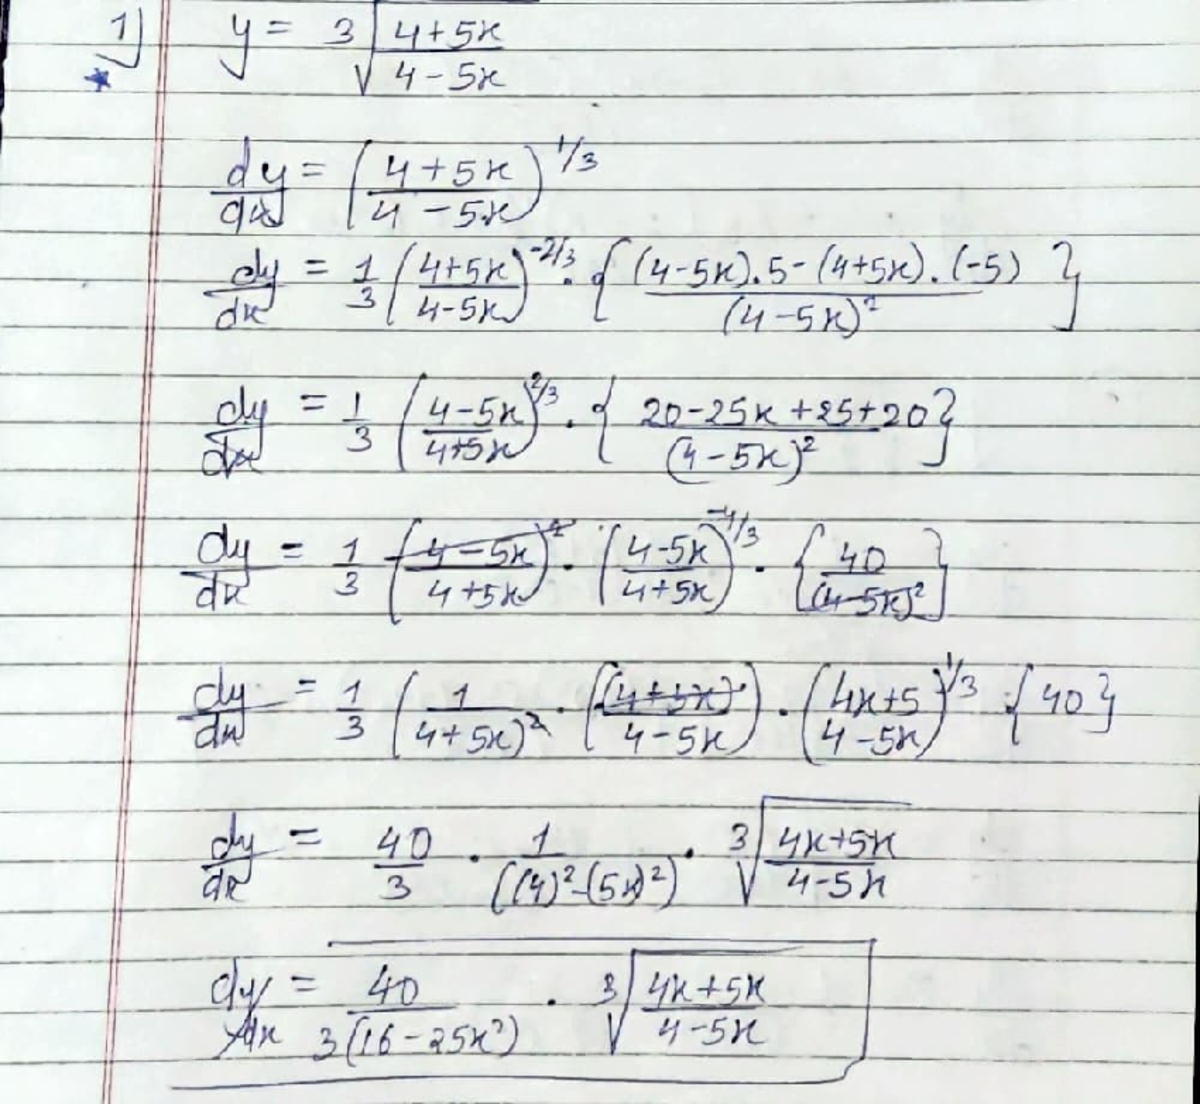 1) y = ∛((4+5x)/(4-5x))
dy/dx = ((4+5x)/(4-5x))^(1/3)
dy/dx = 1/3 ((4+5x)/(4-5x))^(-2/3) · {((4-5x).5-(4+5x).(-5))/(4-5x)²}
dy/dx = 1/3 ((4-5x)/(4+5x))^(2/3) · {(20-25x+25+20)/(4-5x)²}
dy/dx = 1/3 ((4-5x)/(4+5x))² · ((4-5x)/(4+5x))^(-4/3) · {40/(4-5x)²}
dy/dx = 1/3 (1/(4+5x)²) · ((4+5x)/(4-5x)) · ((4x+5)/(4-5x))^(1/3) · {40}
dy/dx = 40/3 · 1/((4)²-(5x)²) · ∛((4x+5x)/(4-5x))
dy/dx = 40/(3(16-25x²)) · ∛((4x+5x)/(4-5x))